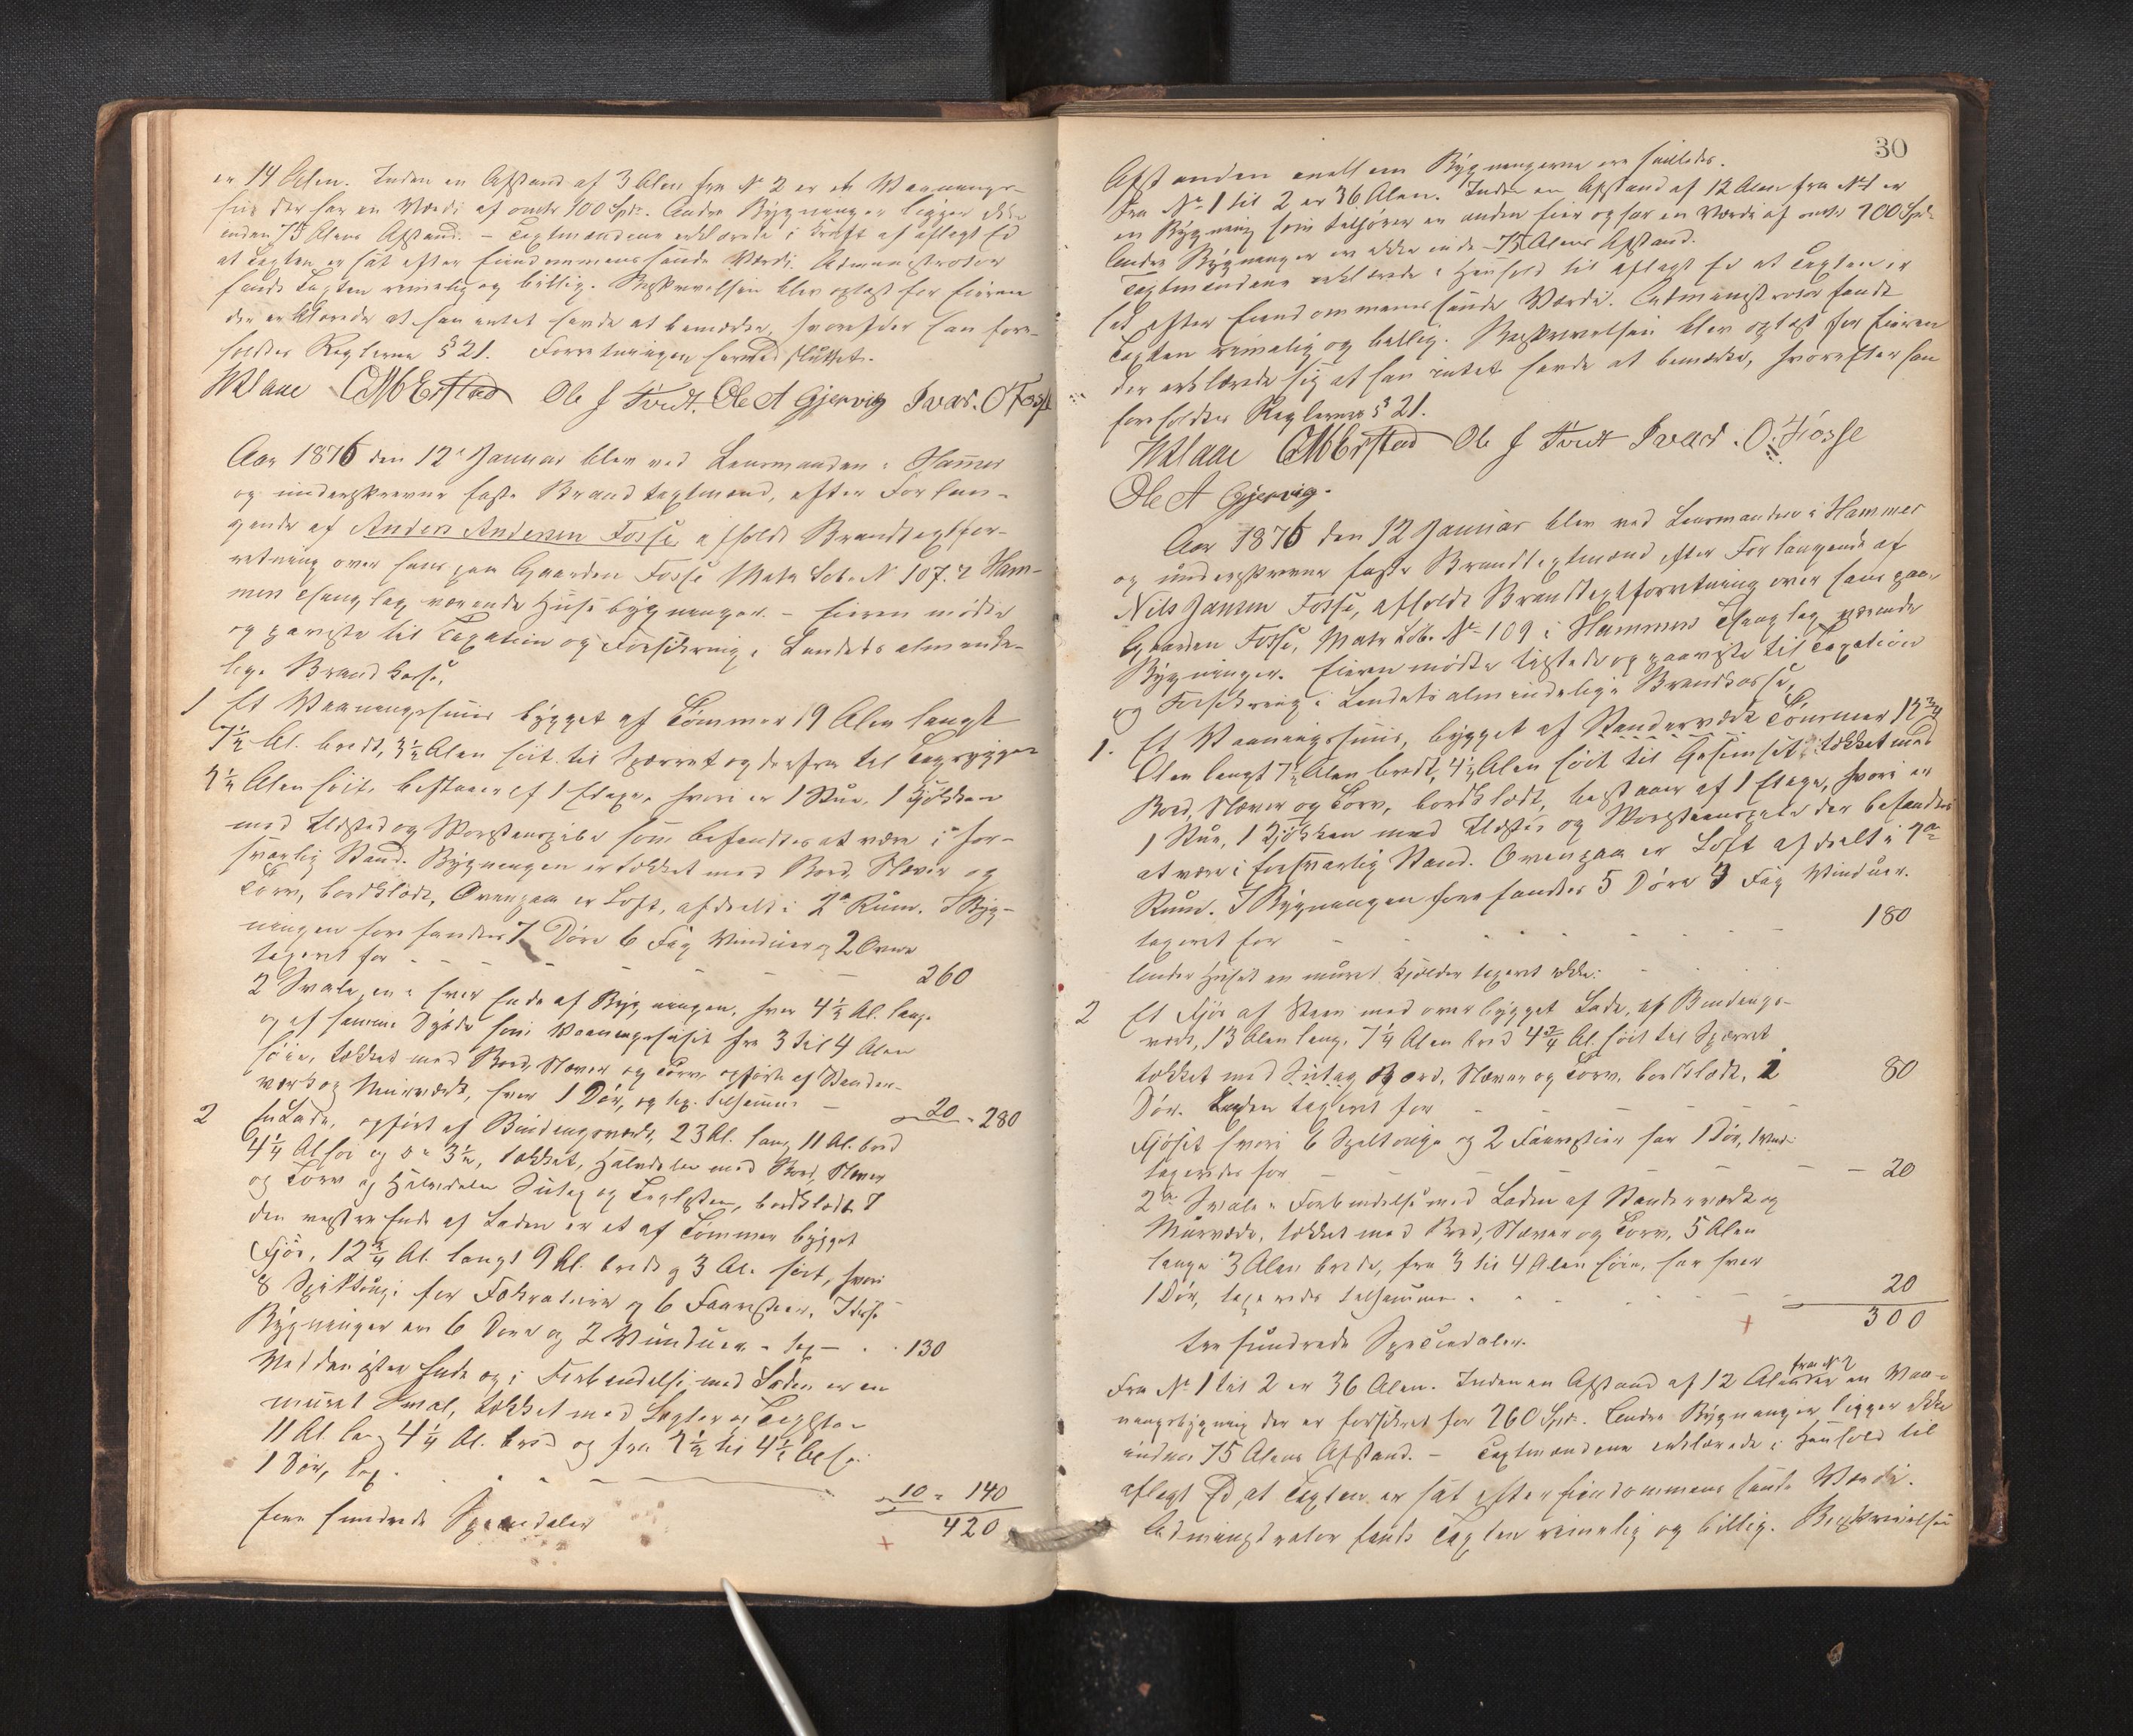 er 14 Alen. Inden en Afstand af 3 Alen fra No 2 er et Vaanings-
huus der har en Værdi af omtr 100 Spdr. Andre Bygninger ligger ikke
inden 75 Alens Afstand. – Taxtmændene erklærede i Kraft af aflagt Ed
at Taxten er sat efter Eiendommens sande Værdi. Administrator
fandt Taxten rimelig og billig. Beskrivelsen blev oplæst for Eieren
der erklærede at han intet havde at bemærke, hvorefter han fore-
holdtes Reglerne § 21. Forretningen hermed sluttet.
Ole J Tvedt. Ole A Gjervig Ivar. O Fosse
Aar 1876 den 12te Januar blev ved Lensmanden i Hammer
og underskrevne faste Brandtaxtmænd, efter Forlan-
gende af Anders Andersen Fosse, afholdt Brandtaxtfor-
retning over hans paa Gaarden Fosse Matr Løb. N 107. i Ham-
mer Thinglag værende Huusbygninger. – Eieren mødte
og paaviste til Taxation og Forsikring i Landets alminde-
lige Brandkasse,
1 Et Vaaningshuus bygget af Tømmer 19 Alen langt
7½ Al. bredt, 3½ Alen høit til Sperret og derfra til Tagryggen
Alen høit, bestaaer af 1 Etage, hvori er 1 Stue, 1 Kjøkken
med Ildsted og Skorstenspibe som befandtes at være i for-
svarlig Stand. Bygningen er tækket med Bord, Næver og
Torv, bordklædt, Ovenpaa er Loft, afdeelt i 2de Rum. I Byg-
ningen forefandtes 7 Døre 6 Fag Vinduer og 2 Ovne
taxeret for - - - - - 260
2 Svale, en i hver Ende af Bygningen, hver 4½ Al. lang
og af samme Bredde som Vaaningshuset fra 3 til 4 Alen
høie, tækket med Bord, Næver og Torv opført af Stander-
værk og Muurværk, hver 1 Dør, og tax. tilsammen – 20 = 280
2 En Lade, opført af Bindingsværk, 23 Al. lang 11 Al. bred
4¼ Al høi og 3½, tækket, Halvdelen med Bord, Næver
og Torv og Halvdelen Sutag og Taglsten, bordklædt I
den vestre Ende af Laden er et af Tømmer bygget
Fjøs, 12¾ Al. langt 9 Al. bredt og 3 Al. høit, hvori
8 Spiltoug for Fækreaturer og 6 Faarestier. I disse
Bygninger er 6 Døre og 2 Vinduer - tax – . . 130
Ved den østre Ende og i Forbindelse med Laden er en
muret Sval, tækket med Lægter og Taglsten
11 Al. lang 4¼ Al. bred og fra 2½ til 4½ Al høi
1 Dør, tax. - - - 10 = 140
fire hundrede Speciedaler 420
30
Afstanden mellem Bygningerne ere saaledes.
Fra No 1 til 2 er 36 Alen. Inden en Afstand af 12 Alen fra No 1 er
en Bygning som tilhører en anden Eier og har en Værdi af omtr 100 Spd.
Andre Bygninger er ikke inden 75 Alens Afstand.
Taxtmændene erklærede i Henhold til aflagt Ed at Taxten er
sat efter Eiendommens sande Værdi. Administrator fandt
Taxten rimelig og billig. Beskrivelsen blev oplæst for Eieren
der erklærede sig at han intet havde at bemærke, hvorefter han
foreholdtes Reglernes § 21.
Ole J Tvedt Ivar. O. Fosse
Ole A Gjervig.
Aar 1876 den 12 Januar blev ved Lensmanden i Hammer
og underskrevne faste Brandtaxtmænd efter Forlangende af
Nils Jansen Fosse, afholdt Brandtaxtforretning over hans paa
Gaarden Fosse, Matr Løb. No 109 i Hammer Thinglag værende
Bygninger. Eieren mødte tilstede og paaviste til Taxation
og Forsikring i Landets almindelige Brandkasse,
1. Et Vaaningshuus, bygget af Standerværk Tømmer 12¾
Alen langt 7½ Alen bredt, 4½ Alen høit til Gesimset, tækket med
Bord, Næver og Torv, bordklædt, bestaaer af 1 Etage, hvori er
1 Stue, 1 Kjøkken med Ildsted og Skorstenspibe der befandtes
at være i forsvarlig Stand. Ovenpaa er Loft afdeelt i 2de
Rum. I Bygningen forefandtes 5 Døre Fag Vinduer.
taxeret for - - - - - 180
Under Huset en muret Kjælder taxeret ikke.
2 Et Fjøs af Steen med overbygget Lade, af Bindings-
værk, 13 Alen lang, 7¼ Alen bred 4¾ Al. høit til Sperret
tækket med Sutag Bord, Næver og Torv, bordklædt, 1 80
Dør. Laden taxeret for - - -
Fjøset hvori 6 Spiltouge og 2 Faarestier har 1 Dør, 1 Vindu
taxeredes for – – – – – 20
2de Svale i Forbindelse med Laden af Standerværk og
Muurværk, tækket med Bord, Næver og Torv, 5 Alen
lange 3 Alen brede, fra 3 til 4 Alen høie, har hver
1 Dør, taxeredes tilsammen - - - 20
300
tre hundrede Speciedaler.
Fra No 1 til 2 er 36 Alen. Inden en Afstand af 12 Alen fra No 2 er en Vaa-
ningsbygning der er forsikret for 260 Spd. Andre Bygninger ligger ikke
inden 75 Alens Afstand. – Taxtmændene erklærede i Henhold til
aflagt Ed, at Taxten er sat efter Eiendommens sande Værdi.
Administrator fandt Taxten rimelig og billig. Beskrivelsen